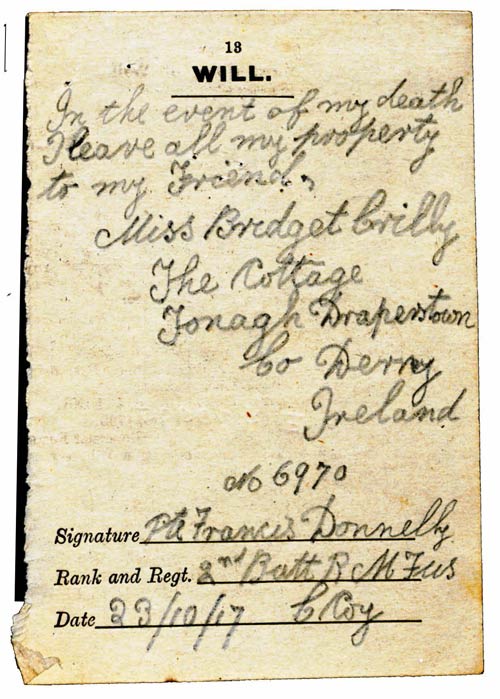 13
WILL.
In the event of my death
I leave all my property
to my Friend,
Miss Bridget Crilly
The Cottage
Tonagh Draperstown
Co Derry
Ireland
No 6970
Signature Pte Francis Donnelly
Rank and Regt. 2nd Batt R M Fus
Date 23/10/17 C Coy